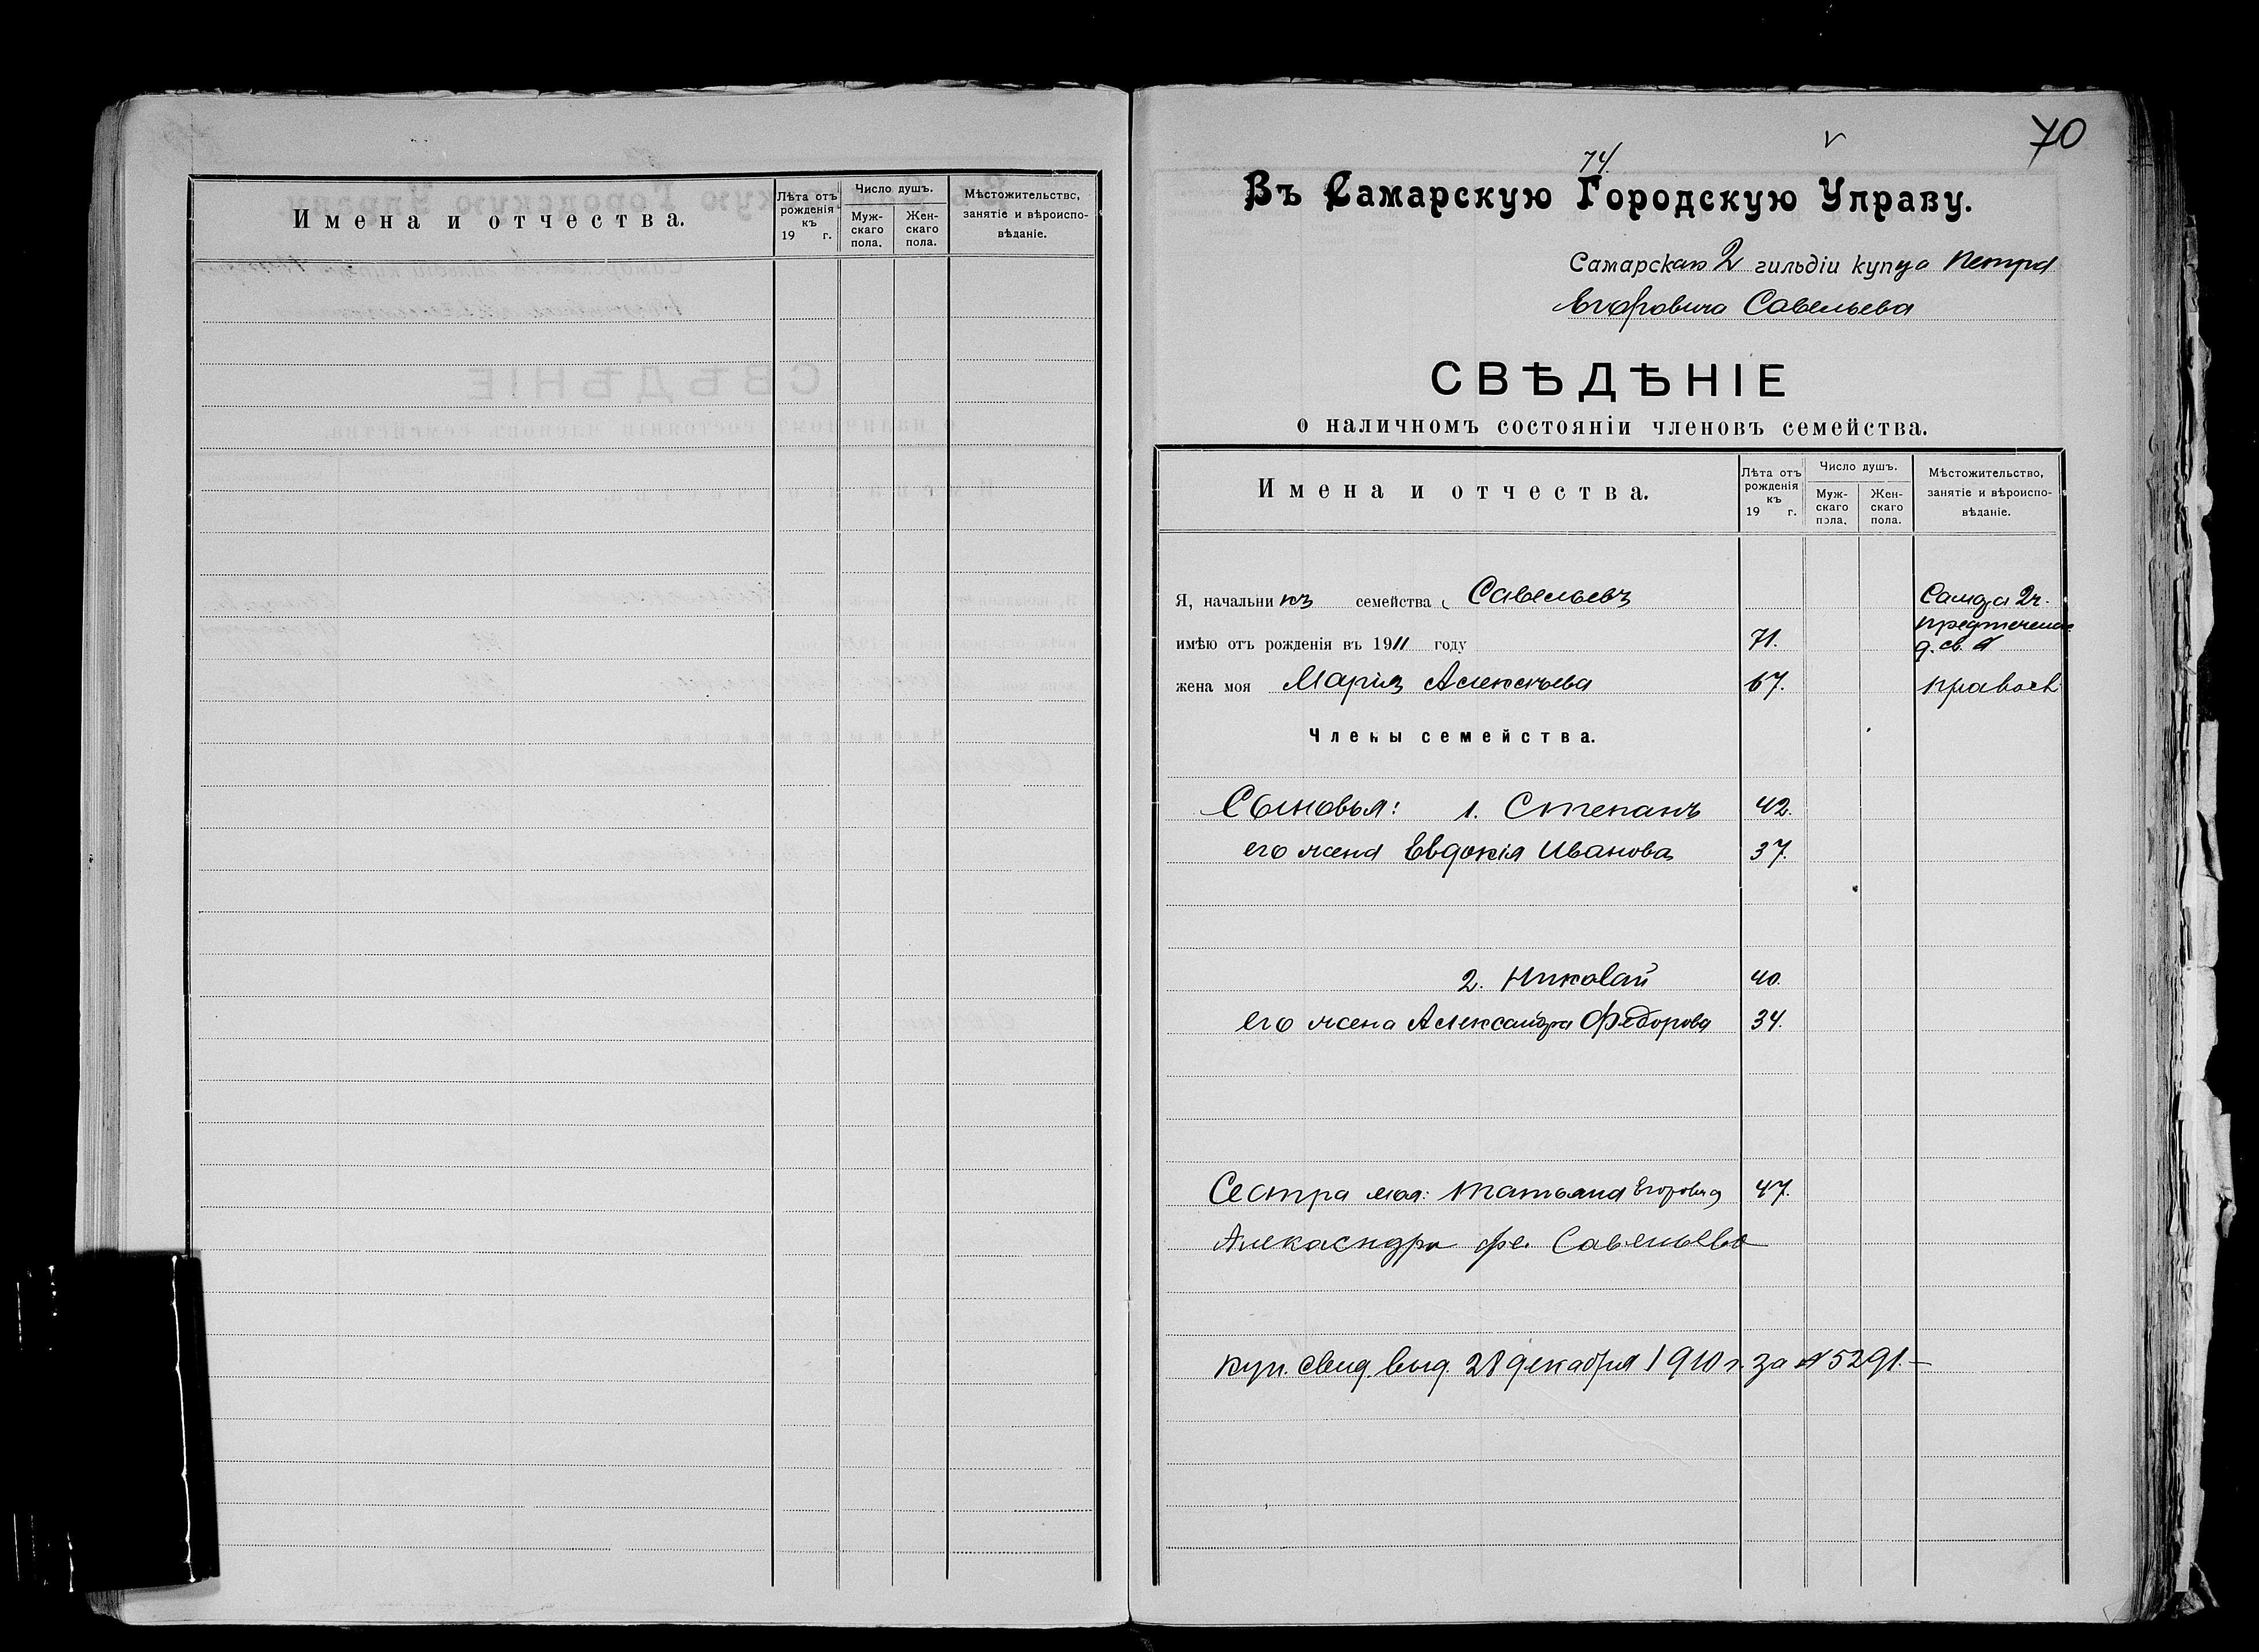 Имена и отчества.
Лѣта отъ рожденія къ 19 г.
Число душъ.
Мужскаго пола.
Женскаго пола.
Мѣстожительство, занятіе и вѣроисповѣданіе.
70
74.
Въ Самарскую Городскую Управу.
Самарскаго 2 гильдіи купца Петра
Егоровича Савельева
СВѢДѢНІЕ
о наличномъ состояніи членовъ семейства.
Имена и отчества.
Лѣта отъ рожденія къ 19 г.
Число душъ.
Мужскаго пола.
Женскаго пола.
Мѣстожительство, занятіе и вѣроисповѣданіе.
Я, начальникъ семейства Савельевъ
имѣю отъ рожденія въ 1911 году 71.
д. св.
жена моя Марія Алексѣева 67. правосл.
Члены семейства.
Сыновья: 1. Степанъ 42.
его жена Евдокія Иванова 37.
2. Николай 40.
его жена Александра Федорова 34.
Сестра моя: Татьяна Егоровна 47.
Алекаснdра фе. Савельева
Куп. свид. выд. 28 декабря 1910 г. за № 5291.—